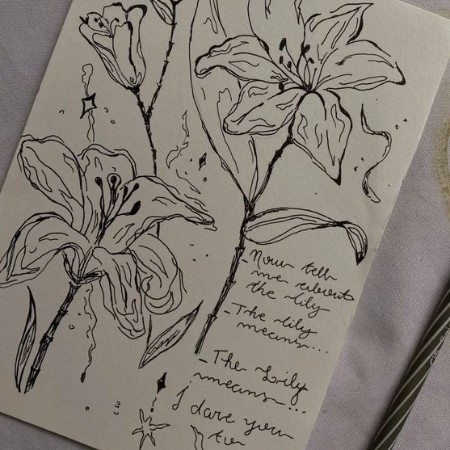 - Now tell
me about
the lily
- The lily
means...
- The Lily
means...
I dare you
to